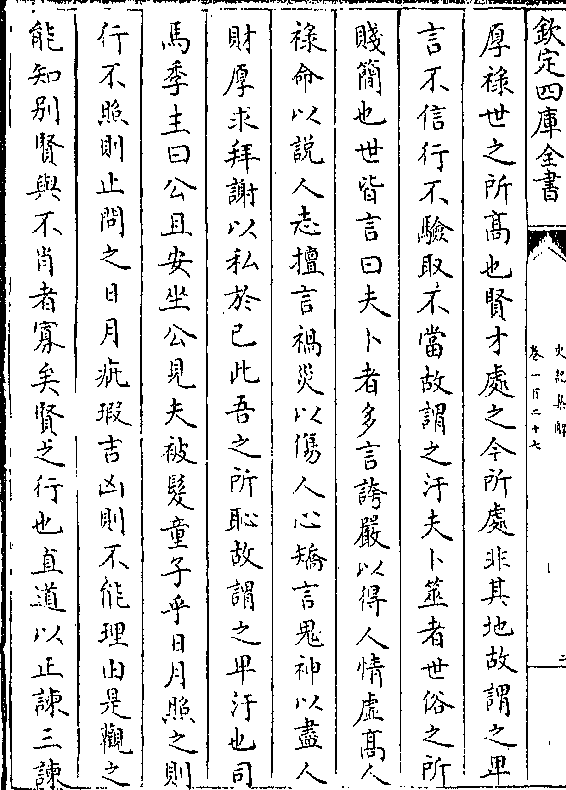 欽定四庫全書
史記集解
卷一百二十七
二
厚祿世之所髙也賢才處之今所處非其地故謂之卑
言不信行不驗取不當故謂之汙夫卜筮者世俗之所
賤簡也世皆言曰夫卜者多言誇嚴以得人情虚髙人
祿命以說人志擅言禍災以傷人心矯言鬼神以盡人
財厚求拜謝以私於已此吾之所恥故謂之卑汙也司
馬季主曰公且安坐公見夫被髮童子乎日月照之則
行不照則止問之日月疵瑕吉凶則不能理由是觀之
能知别賢與不肖者寡矣賢之行也直道以正諫三諫